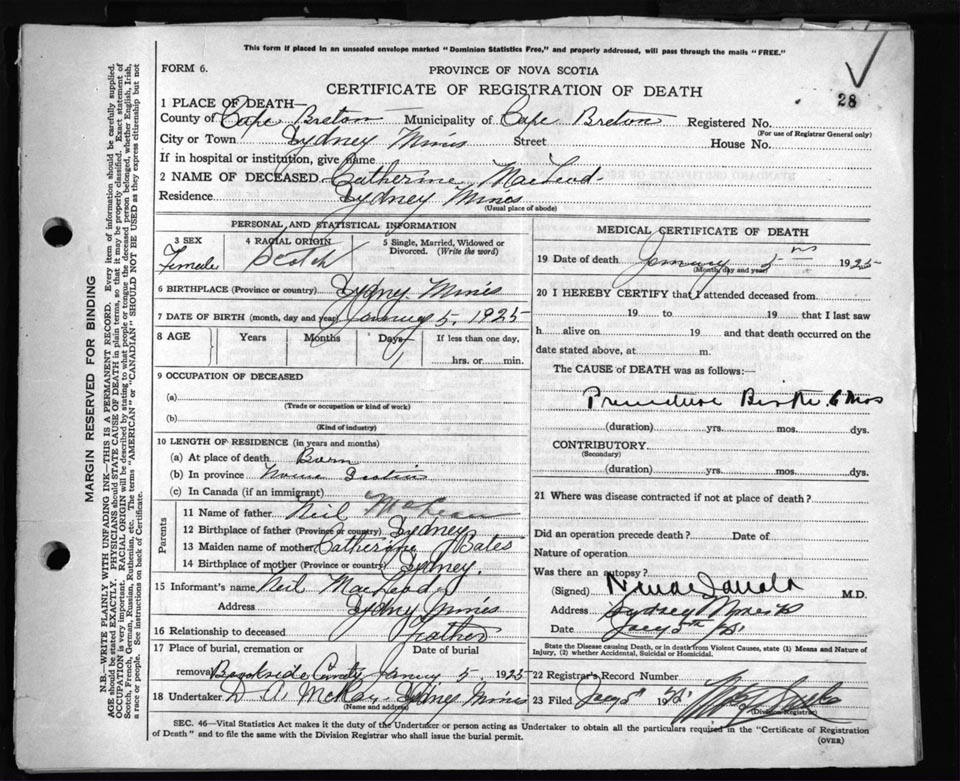 This form if placed in an unsealed envelope marked "Dominion Statistics Free," and properly addressed, will pass through the mails "FREE."
FORM 6.
PROVINCE OF NOVA SCOTIA
CERTIFICATE OF REGISTRATION OF DEATH
28
1 PLACE OF DEATH—
County of Cape Breton Municipality of Cape Breton Registered No.
(For use of Registrar General only)
City or Town Sydney Mines Street House No.
If in hospital or institution, give name
2 NAME OF DECEASED Catherine MacLeod
Residence Sydney Mines
(Usual place of abode)
PERSONAL AND STATISTICAL INFORMATION
3 SEX Female
4 RACIAL ORIGIN Scotch
5 Single, Married, Widowed or Divorced. (Write the word)
6 BIRTHPLACE (Province or country) Sydney Mines
7 DATE OF BIRTH (month, day and year) January 5, 1925
8 AGE Years Months Days If less than one day,
1 hrs. or min.
9 OCCUPATION OF DECEASED
(a)
(Trade or occupation or kind of work)
(b)
(Kind of industry)
10 LENGTH OF RESIDENCE (in years and months)
(a) At place of death Born
(b) In province Nova Scotia
(c) In Canada (if an immigrant)
Parents
11 Name of father Neil
12 Birthplace of father (Province or country) Sydney
13 Maiden name of mother Catherine Bates
14 Birthplace of mother (Province or country) Sydney.
15 Informant's name Neil MacLeod
Address Sydney Mines
16 Relationship to deceased Father
17 Place of burial, cremation or removal Date of burial
Brookside January 5 1925
18 Undertaker D. A. McKay Sydney Mines
(Name and address)
MEDICAL CERTIFICATE OF DEATH
19 Date of death January 5 1925
(Month, day and year)
20 I HEREBY CERTIFY that I attended deceased from
19 to 19 that I last saw
h alive on 19 and that death occurred on the
date stated above, at m.
The CAUSE of DEATH was as follows:—
Premature Birth 6 mos
(duration) yrs. mos. dys.
CONTRIBUTORY
(Secondary)
(duration) yrs. mos. dys.
21 Where was disease contracted if not at place of death?
Did an operation precede death? Date of
Nature of operation
Was there an autopsy?
(Signed) M.D.
Address Sydney Mines
Date
State the Disease causing Death, or in death from Violent Causes, state (1) Means and Nature of
Injury, (2) whether Accidental, Suicidal or Homicidal.
22 Registrar's Record Number
23 Filed 19
(Division Registrar)
SEC. 46—Vital Statistics Act makes it the duty of the Undertaker or person acting as Undertaker to obtain all the particulars required in the "Certificate of Registration
of Death" and to file the same with the Division Registrar who shall issue the burial permit.
(OVER)
MARGIN RESERVED FOR BINDING
N.B.—WRITE PLAINLY WITH UNFADING INK—THIS IS A PERMANENT RECORD. Every item of information should be carefully supplied.
AGE should be stated EXACTLY. PHYSICIANS should STATE CAUSE OF DEATH in plain terms, so that it may be properly classified. Exact statement of
OCCUPATION is very important. RACIAL ORIGIN will be described by stating to what people or tongue the deceased person belonged, whether English, Irish,
Scotch, French, German, Russian, Ruthenian, etc. The terms "AMERICAN" or "CANADIAN" SHOULD NOT BE USED as they express citizenship but not
a race or people. See instructions on back of Certificate.